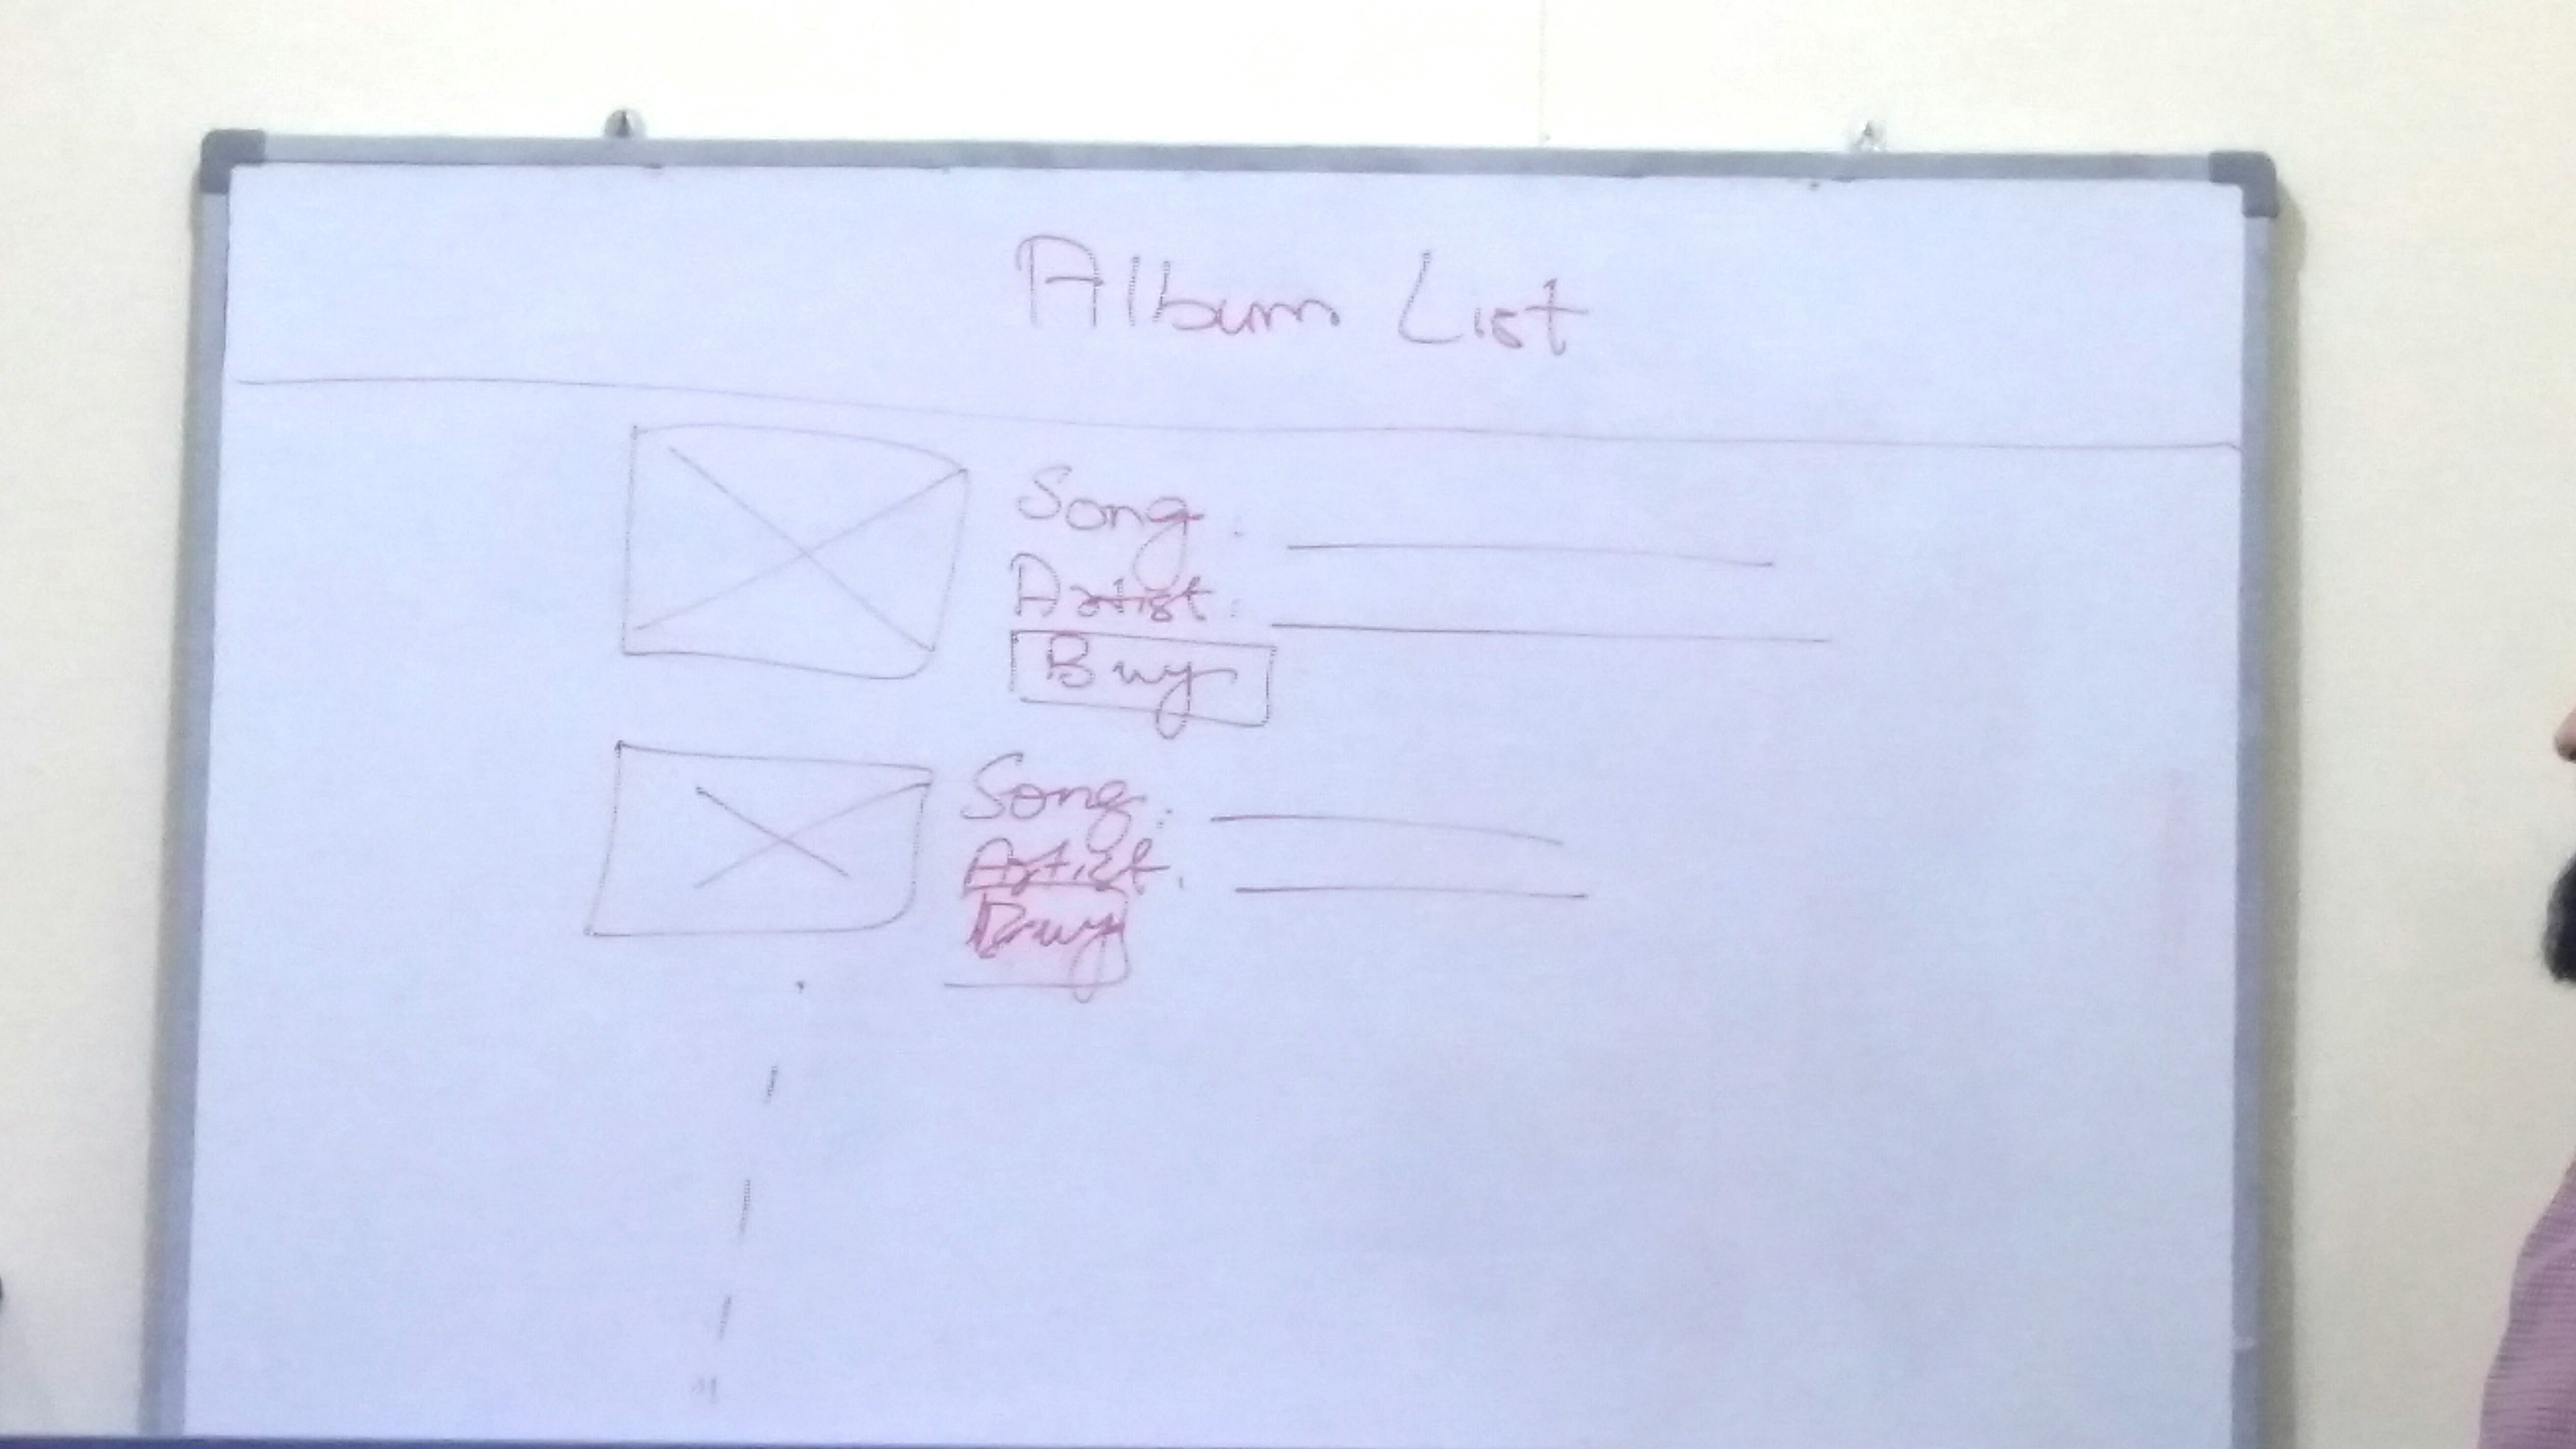 Album List
Song :
Artist :
Buy
Song :
Artist :
Buy